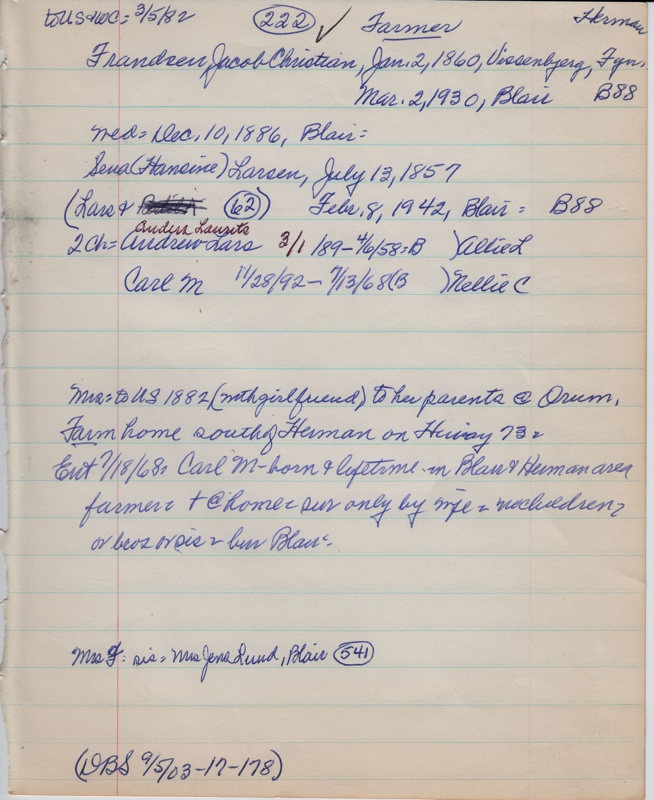 to US + WC = 3/5/82 (222) ✓ Farmer Herman
Frandsen, Jacob Christian, Jan. 2, 1860, Vissenbjerg, Fyn.
Mar. 2, 1930, Blair B88
wed = Dec. 10, 1886, Blair =
Sena (Hansine) Larsen, July 13, 1857
(Lars + (62)) Febr. 8, 1942, Blair = B88
Anders Laurits
2 Ch = Andrew Lars 3/1/89 - 4/6/58 = B ) Allie L
Carl M 11/28/92 - 7/13/68 (B ) Nellie C
Mrs = to US 1882 (with girlfriend) to her parents @ Orum.
Farm home south of Herman on Hiway 73 =
Ent 7/18/68 = Carl M - born + lifetime in Blair + Herman area
farmer = + @ home = sur only by wife = no children,
or bros or sis = bur Blair =
Mrs F: sis = Mrs Jens Lund, Blair (541)
(DBS 9/5/03-17-178)